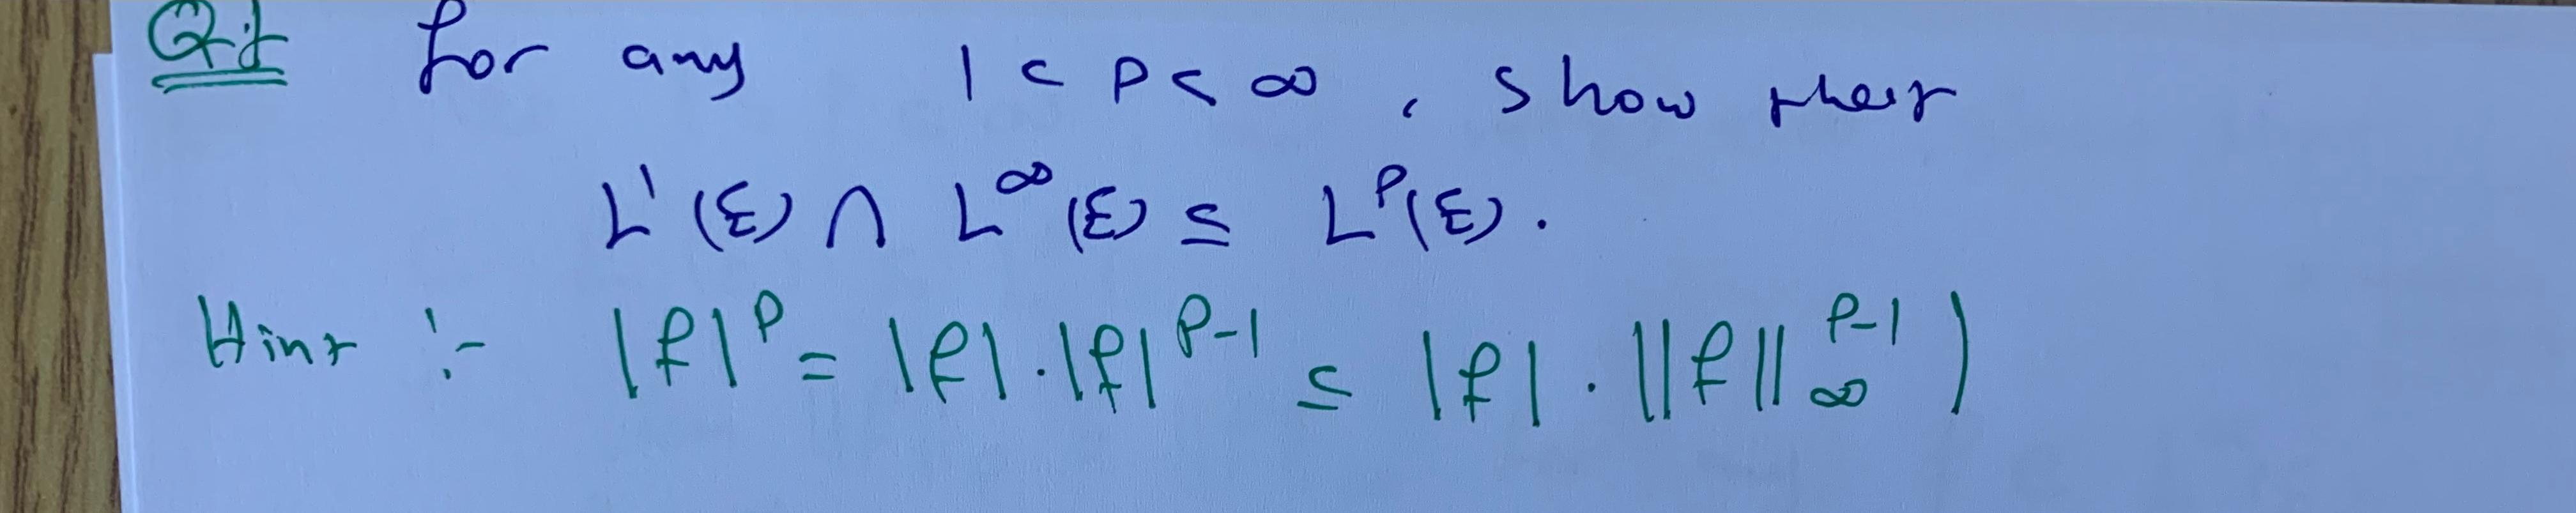 Q.1 For any 1 < p < ∞, show that
L¹(E) ∩ L^∞(E) ⊆ L^p(E).
Hint :- |f|^p = |f|.|f|^{p-1} ≤ |f|.||f||_∞^{p-1})